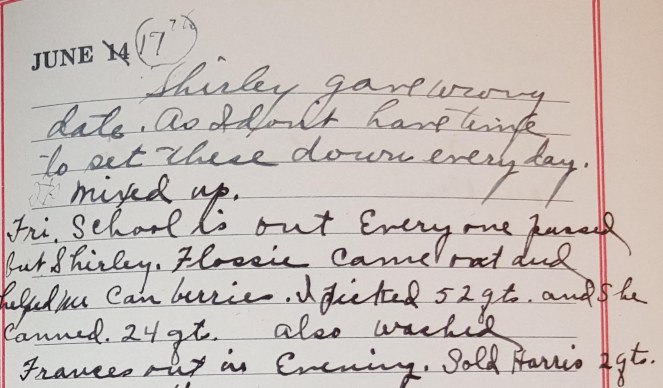 JUNE 14 17th
Shirley gave wrong
date. As I don't have time
to set these down every day.
mixed up.
Fri. School is out Every one passed
but Shirley. Flossie came out and
helped me Can berries. I picked 52 qts. and She
canned. 24 qts. also washed
Frances out in Evening. Sold Harris 2 qts.